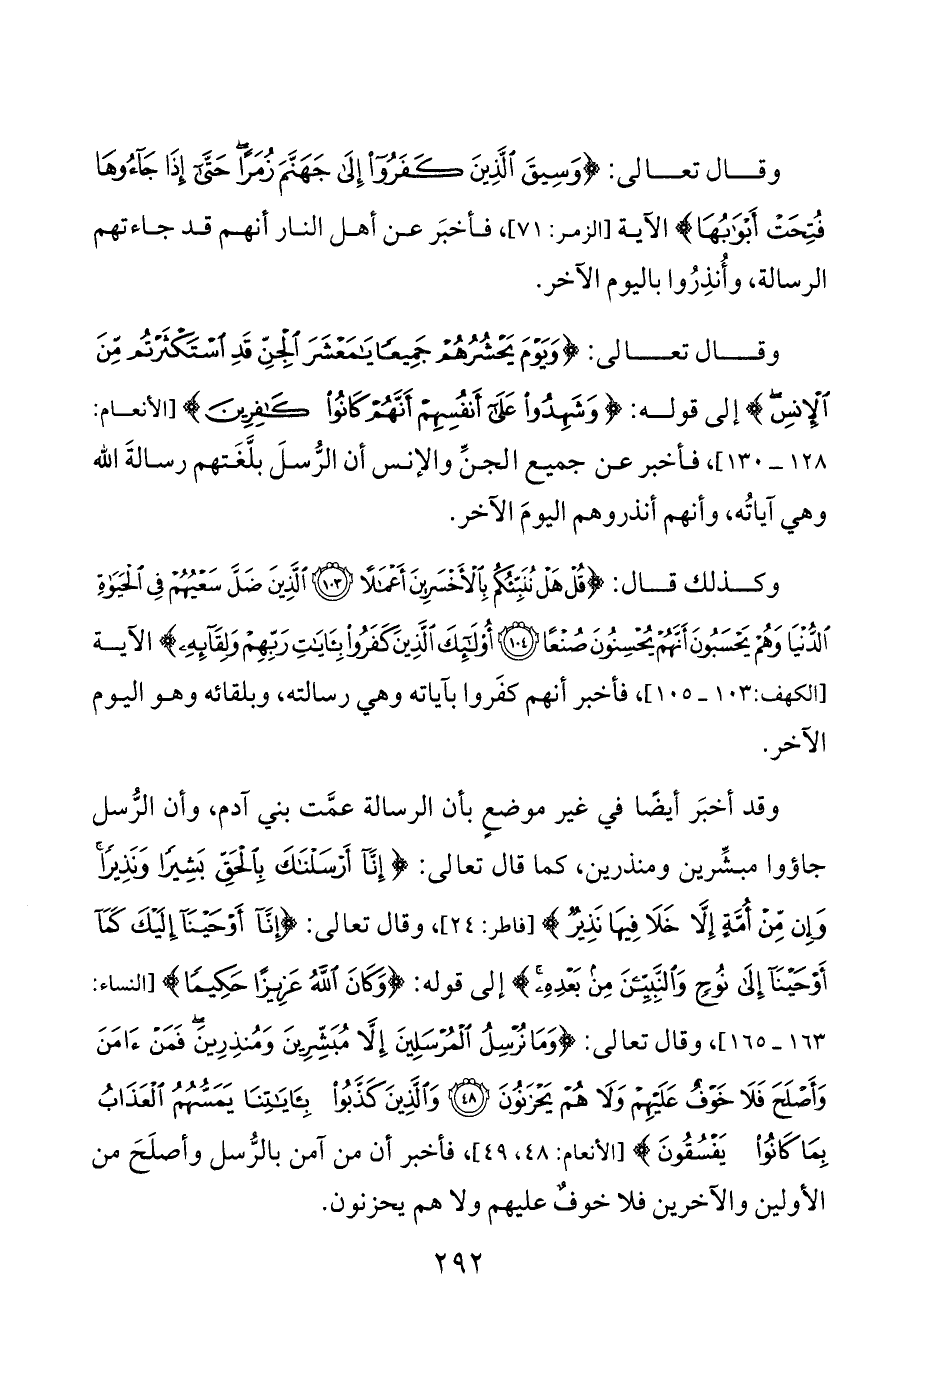 وقـــال تعـــالى: ﴿وَسِيقَ ٱلَّذِينَ كَفَرُوٓا۟ إِلَىٰ جَهَنَّمَ زُمَرًا ۖ حَتَّىٰٓ إِذَا جَآءُوهَا
فُتِحَتْ أَبْوَٰبُهَا﴾ الآية [الزمر: ٧١]، فأخبَر عن أهل النار أنهم قد جاءتهم
الرسالة، وأُنذِرُوا باليوم الآخر.
وقـــال تعـــالى: ﴿وَيَوْمَ يَحْشُرُهُمْ جَمِيعًا يَٰمَعْشَرَ ٱلْجِنِّ قَدِ ٱسْتَكْثَرْتُم مِّنَ
ٱلْإِنسِ ۖ﴾ إلى قوله: ﴿وَشَهِدُوا۟ عَلَىٰٓ أَنفُسِهِمْ أَنَّهُمْ كَانُوا۟ كَٰفِرِينَ﴾ [الأنعام:
١٢٨ ـ ١٣٠]، فأخبر عن جميع الجنِّ والإنس أن الرُّسلَ بلَّغَتهم رسالةَ الله
وهي آياتُه، وأنهم أنذروهم اليومَ الآخر.
وكـذلك قـال: ﴿قُلْ هَلْ نُنَبِّئُكُم بِٱلْأَخْسَرِينَ أَعْمَٰلًا ١٠٣ ٱلَّذِينَ ضَلَّ سَعْيُهُمْ فِى ٱلْحَيَوٰةِ
ٱلدُّنْيَا وَهُمْ يَحْسَبُونَ أَنَّهُمْ يُحْسِنُونَ صُنْعًا ١٠٤ أُو۟لَٰٓئِكَ ٱلَّذِينَ كَفَرُوا۟ بِـَٔايَٰتِ رَبِّهِمْ وَلِقَآئِهِۦ﴾ الآيـة
[الكهف: ١٠٣ ـ ١٠٥]، فأخبر أنهم كفَروا بآياته وهي رسالته، وبلقائه وهو اليوم
الآخر.
وقد أخبَر أيضًا في غير موضعٍ بأن الرسالة عمَّت بني آدم، وأن الرُّسل
جاؤوا مبشِّرين ومنذرين، كما قال تعالى: ﴿إِنَّآ أَرْسَلْنَٰكَ بِٱلْحَقِّ بَشِيرًا وَنَذِيرًا ۚ
وَإِن مِّنْ أُمَّةٍ إِلَّا خَلَا فِيهَا نَذِيرٌ﴾ [فاطر: ٢٤]، وقال تعالى: ﴿إِنَّآ أَوْحَيْنَآ إِلَيْكَ كَمَآ
أَوْحَيْنَآ إِلَىٰ نُوحٍ وَٱلنَّبِيِّـۧنَ مِنۢ بَعْدِهِۦ ۚ﴾ إلى قوله: ﴿وَكَانَ ٱللَّهُ عَزِيزًا حَكِيمًا﴾ [النساء:
١٦٣ ـ ١٦٥]، وقال تعالى: ﴿وَمَا نُرْسِلُ ٱلْمُرْسَلِينَ إِلَّا مُبَشِّرِينَ وَمُنذِرِينَ ۖ فَمَنْ ءَامَنَ
وَأَصْلَحَ فَلَا خَوْفٌ عَلَيْهِمْ وَلَا هُمْ يَحْزَنُونَ ٤٨ وَٱلَّذِينَ كَذَّبُوا۟ بِـَٔايَٰتِنَا يَمَسُّهُمُ ٱلْعَذَابُ
بِمَا كَانُوا۟ يَفْسُقُونَ﴾ [الأنعام: ٤٨، ٤٩]، فأخبر أن من آمن بالرُّسل وأصلَحَ من
الأولين والآخرين فلا خوفٌ عليهم ولا هم يحزنون.
٢٩٢